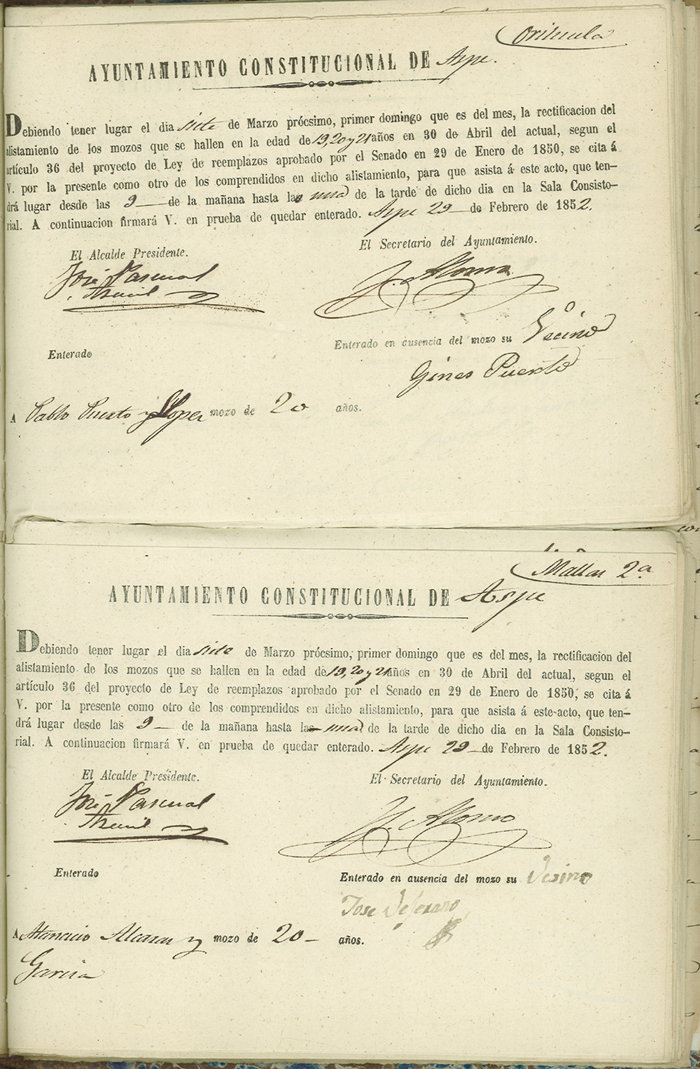 Orihuela
AYUNTAMIENTO CONSTITUCIONAL DE Aspe.
Debiendo tener lugar el dia siete de Marzo prócsimo, primer domingo que es del mes, la rectificacion del
alistamiento de los mozos que se hallen en la edad de 19, 20 y 21 años en 30 de Abril del actual, segun el
artículo 36 del proyecto de Ley de reemplazos aprobado por el Senado en 29 de Enero de 1850, se cita á
V. por la presente como otro de los comprendidos en dicho alistamiento, para que asista á este acto, que ten-
drá lugar desde las 9 de la mañana hasta la una de la tarde de dicho dia en la Sala Consisto-
rial. A continuacion firmará V. en prueba de quedar enterado. Aspe 29 de Febrero de 1852.
El Alcalde Presidente.
El Secretario del Ayuntamiento.
José Pascual
J. Alonso
Enterado
Enterado en ausencia del mozo su Vecino
Gines Puerto
A Pablo Puerto y Lopez mozo de 20 años.
Mallas 2a
AYUNTAMIENTO CONSTITUCIONAL DE Aspe
Debiendo tener lugar el dia siete de Marzo prócsimo, primer domingo que es del mes, la rectificacion del
alistamiento de los mozos que se hallen en la edad de 19, 20 y 21 años en 30 de Abril del actual, segun el
artículo 36 del proyecto de Ley de reemplazos aprobado por el Senado en 29 de Enero de 1850, se cita á
V. por la presente como otro de los comprendidos en dicho alistamiento, para que asista á este acto, que ten-
drá lugar desde las 9 de la mañana hasta la una de la tarde de dicho dia en la Sala Consisto-
rial. A continuacion firmará V. en prueba de quedar enterado. Aspe 29 de Febrero de 1852.
El Alcalde Presidente.
El Secretario del Ayuntamiento.
José Pascual
J. Alonso
Enterado
Enterado en ausencia del mozo su Vesino
Jose
A Atanacio Alcaras y mozo de 20 años.
Garcia